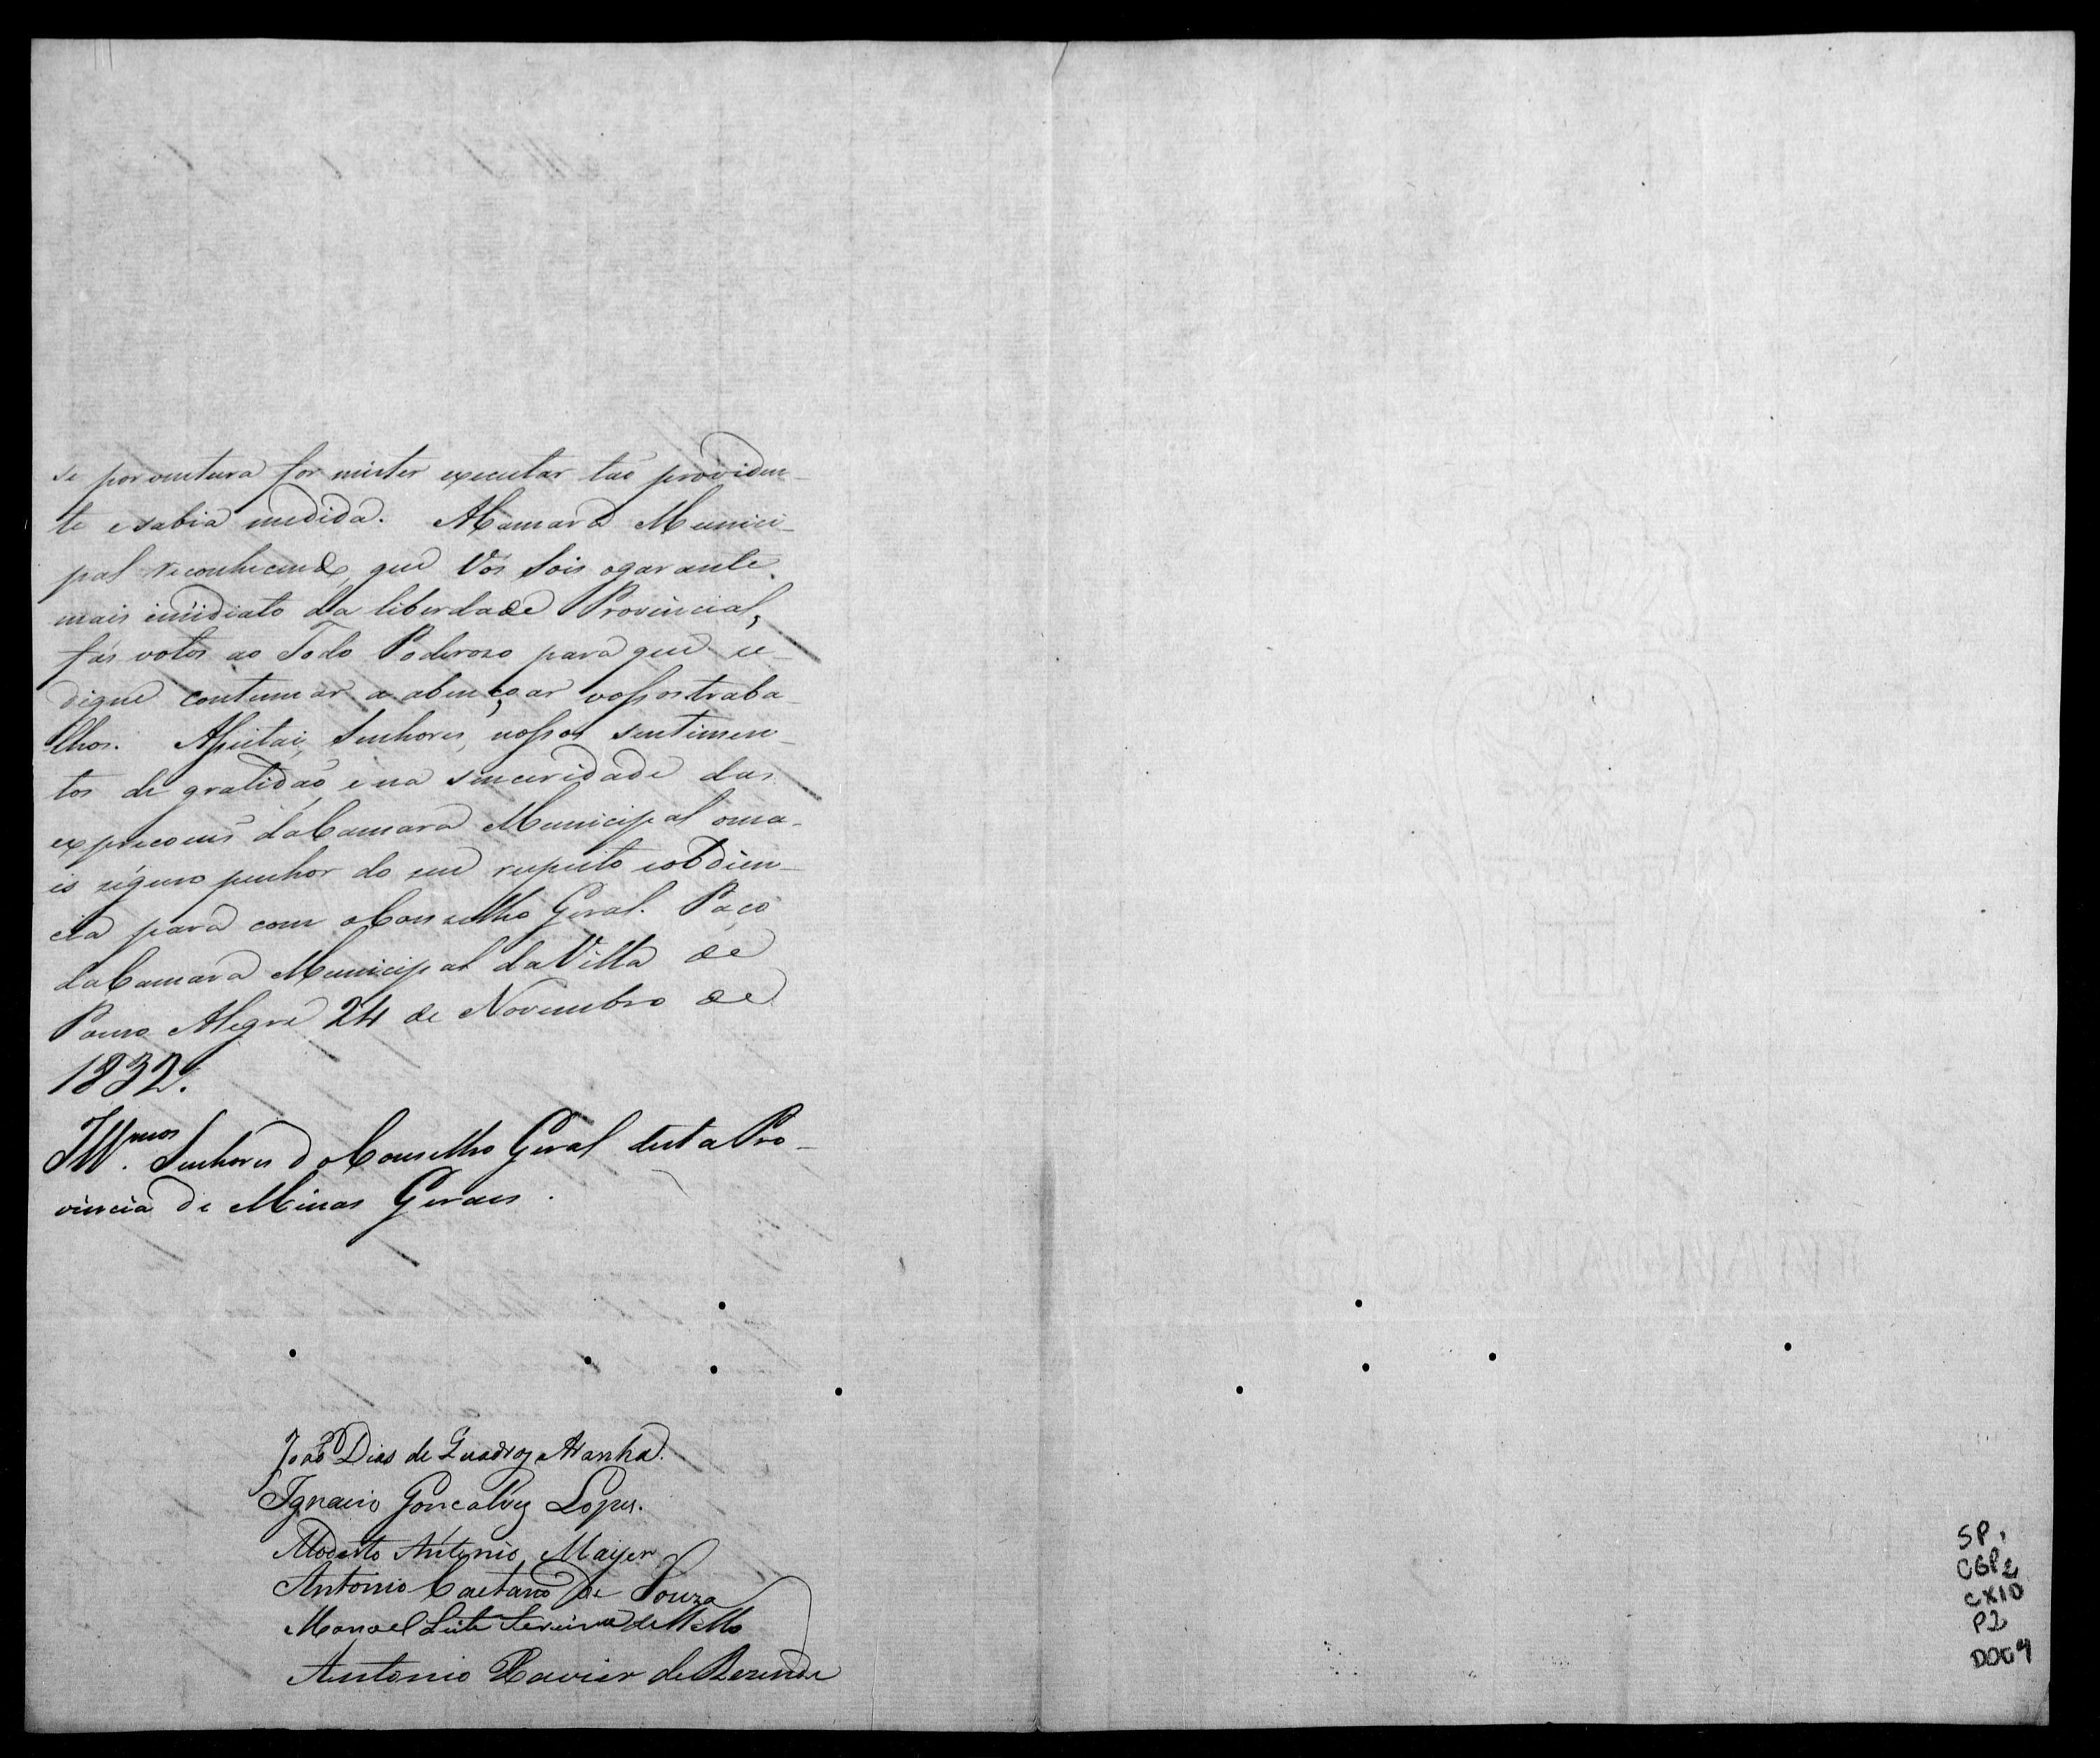 se porventura for mister executar taõ providen-
te e sabia medida. A Camara Munici-
pal reconhecendo, que Vós sois o garante
mais immidiato da liberdade Provincial,
fás votos ao Todo Poderozo para que se
digne continuar a abençoar vossos traba-
lhos. Asseitai, Senhores, nossos sentimen-
tos de gratidaõ, e na sinceridade das
expreçoens da Camara Municipal o ma-
is siguro penhor do seu respeito e obdien-
cia para com o Conselho Geral. Paço
da Camara Municipal da Villa de
Pouso Alegre 24 de Novembro de
1832.
Ill.mos Senhores do Conselho Geral desta Pro-
vincia de Minas Geraes.
João Dias de Quadros Aranha.
Ignacio Goncalves Lopes.
Modesto Antonio Mayer
Antonio Caetano de Souza
Manoel Leite Ferreira de Mello
Antonio Xavier de Rezende
SP,
CGP2
CX10
P2
DOC9